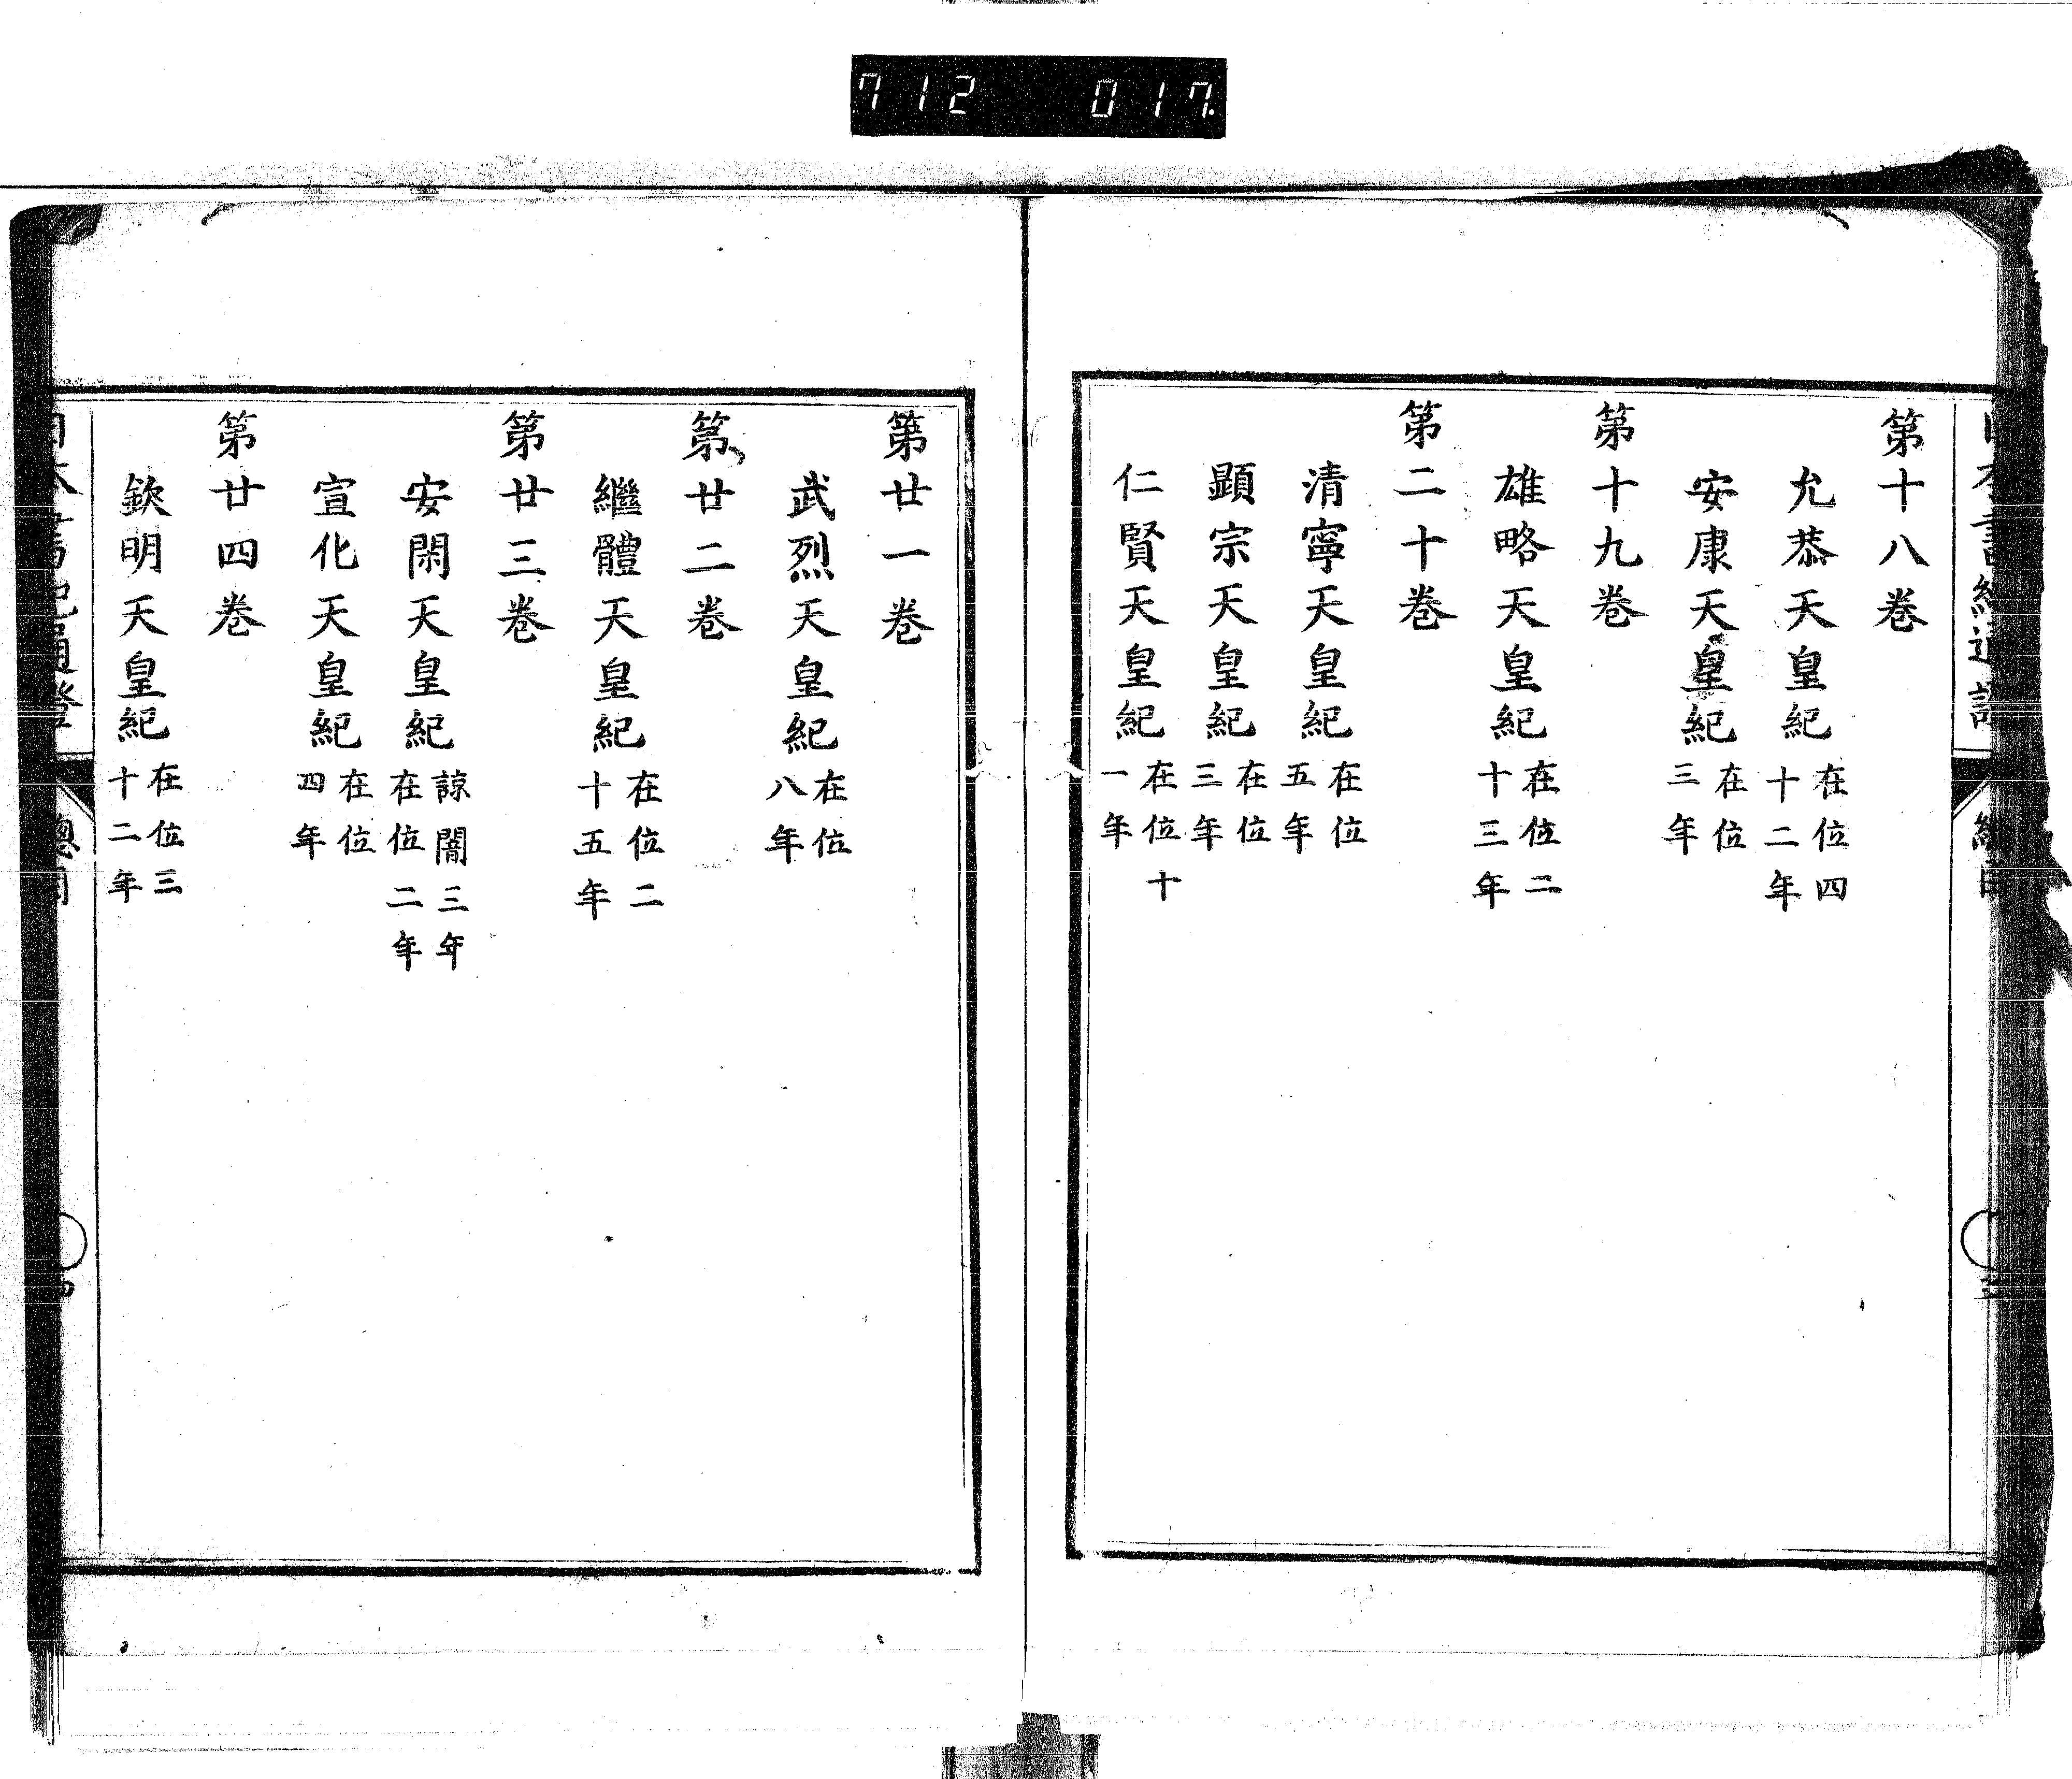 712 017
第十八巻
允恭天皇紀 在位四十二年
安康天皇紀 在位三年
第十九巻
雄略天皇紀 在位二十三年
第二十巻
清寧天皇紀 在位五年
顕宗天皇紀 在位三年
仁賢天皇紀 在位十一年
第廿一巻
武烈天皇紀 在位八年
第廿二巻
繼體天皇紀 在位二十五年
第廿三巻
安閑天皇紀 諒闇三年在位二年
宣化天皇紀 在位四年
第廿四巻
欽明天皇紀 在位三十二年